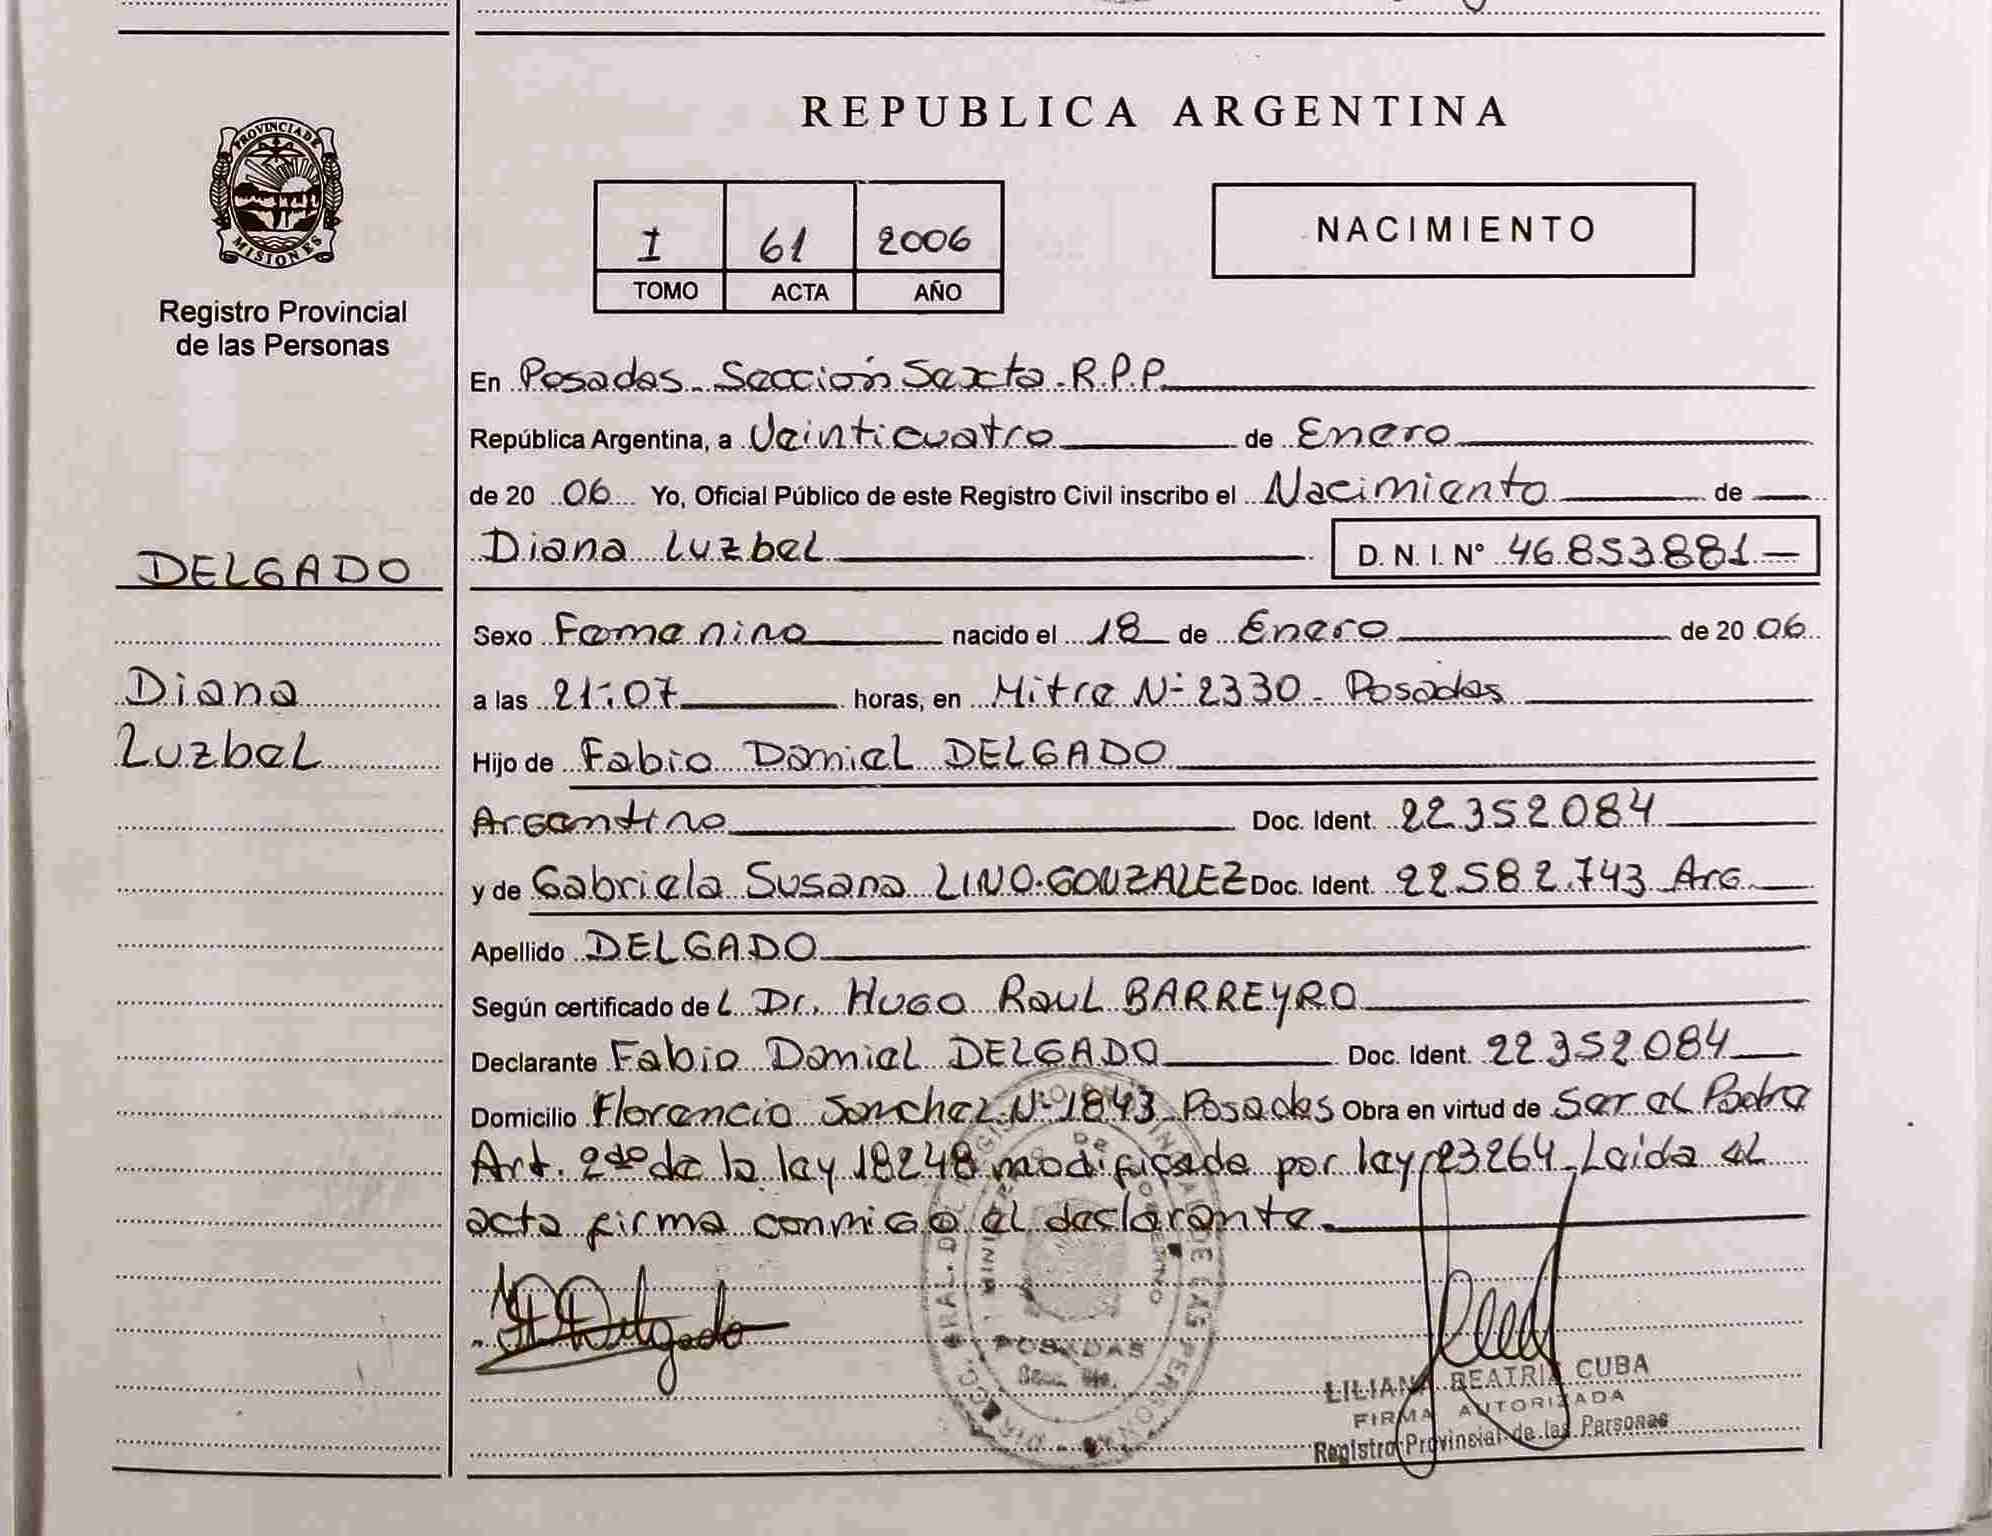 PROVINCIA DE
MISIONES
Registro Provincial
de las Personas
DELGADO
Diana
Luzbel
REPUBLICA ARGENTINA
I 61 2006
TOMO ACTA AÑO
NACIMIENTO
En Posadas Sección Sexta R.P.P.
República Argentina, a Veinticuatro de Enero
de 20 06 Yo, Oficial Público de este Registro Civil inscribo el Nacimiento de
Diana Luzbel D. N. I. N° 46.853.881
Sexo Femenino nacido el 18 de Enero de 20 06
a las 21:07 horas, en Mitre Nº 2330 - Posadas
Hijo de Fabio Daniel DELGADO
Argentino Doc. Ident. 22.352.084
y de Gabriela Susana LINO GONZALEZ Doc. Ident. 22.582.743 Arg.
Apellido DELGADO
Según certificado de L Dr. Hugo Raul BARREYRO
Declarante Fabio Daniel DELGADO Doc. Ident. 22.352.084
Domicilio Florencio Sanchez Nº 1843 Posadas Obra en virtud de Ser el Padre
Art. 2do de la ley 18248 modificada por ley 23264. Leida el
acta firma conmigo el declarante.
Delgado
POSADAS
LILIANA BEATRIZ CUBA
FIRMA AUTORIZADA
Registro Provincial de las Personas